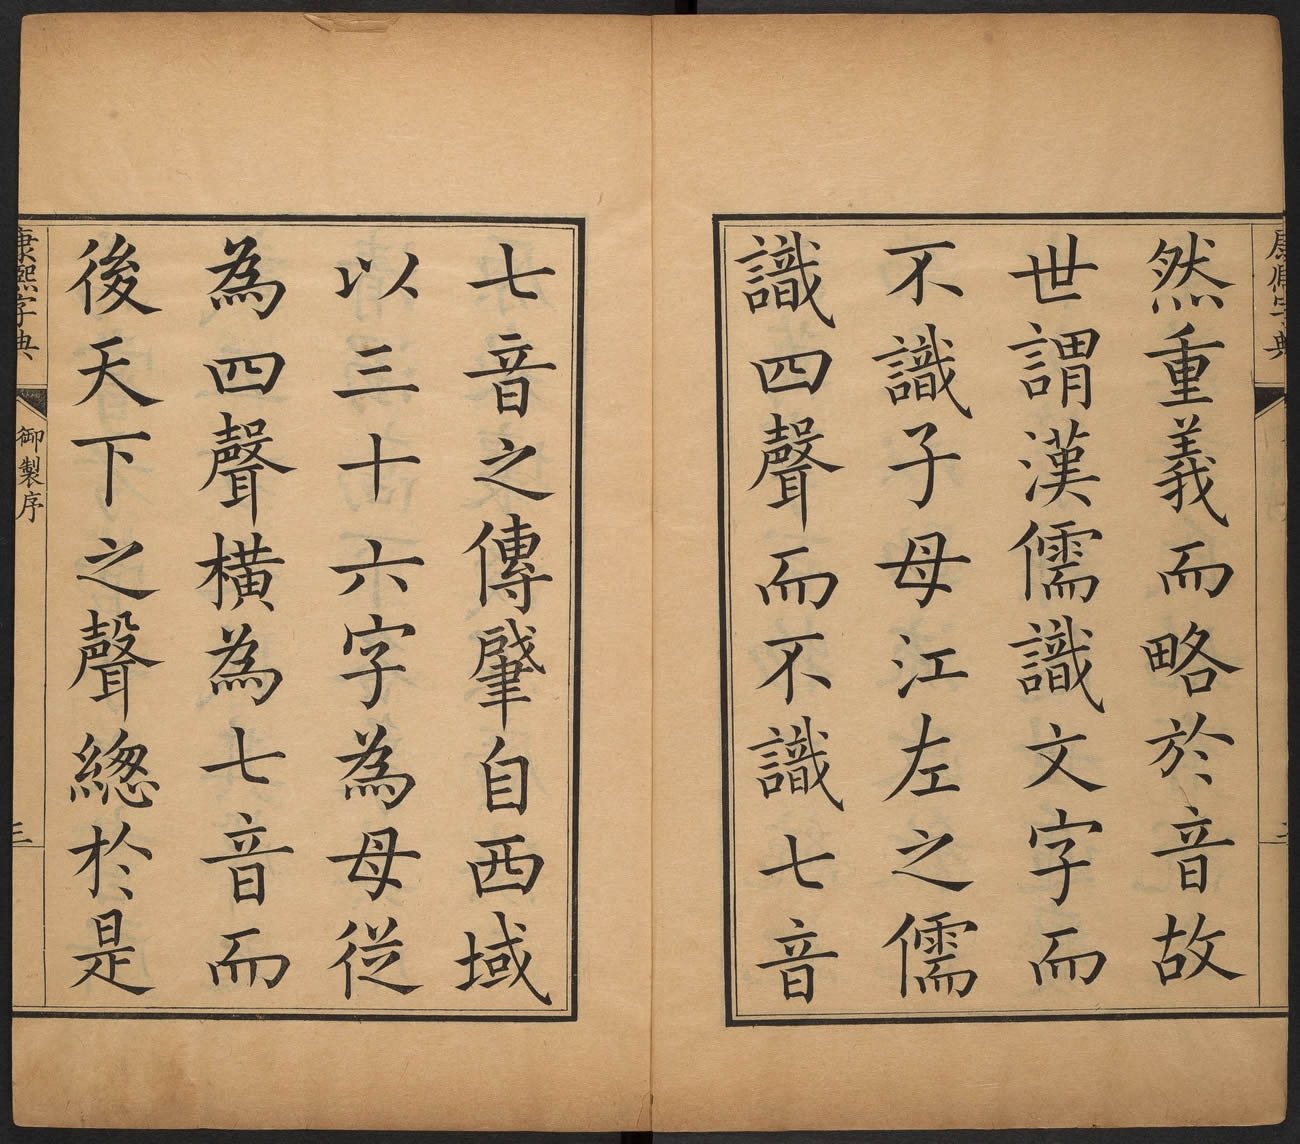 康熙字典
然重義而略於音故
世謂漢儒識文字而
不識子母江左之儒
識四聲而不識七音
七音之傳肇自西域
以三十六字為母從
為四聲橫為七音而
後天下之聲總於是
康熙字典
御製序
三